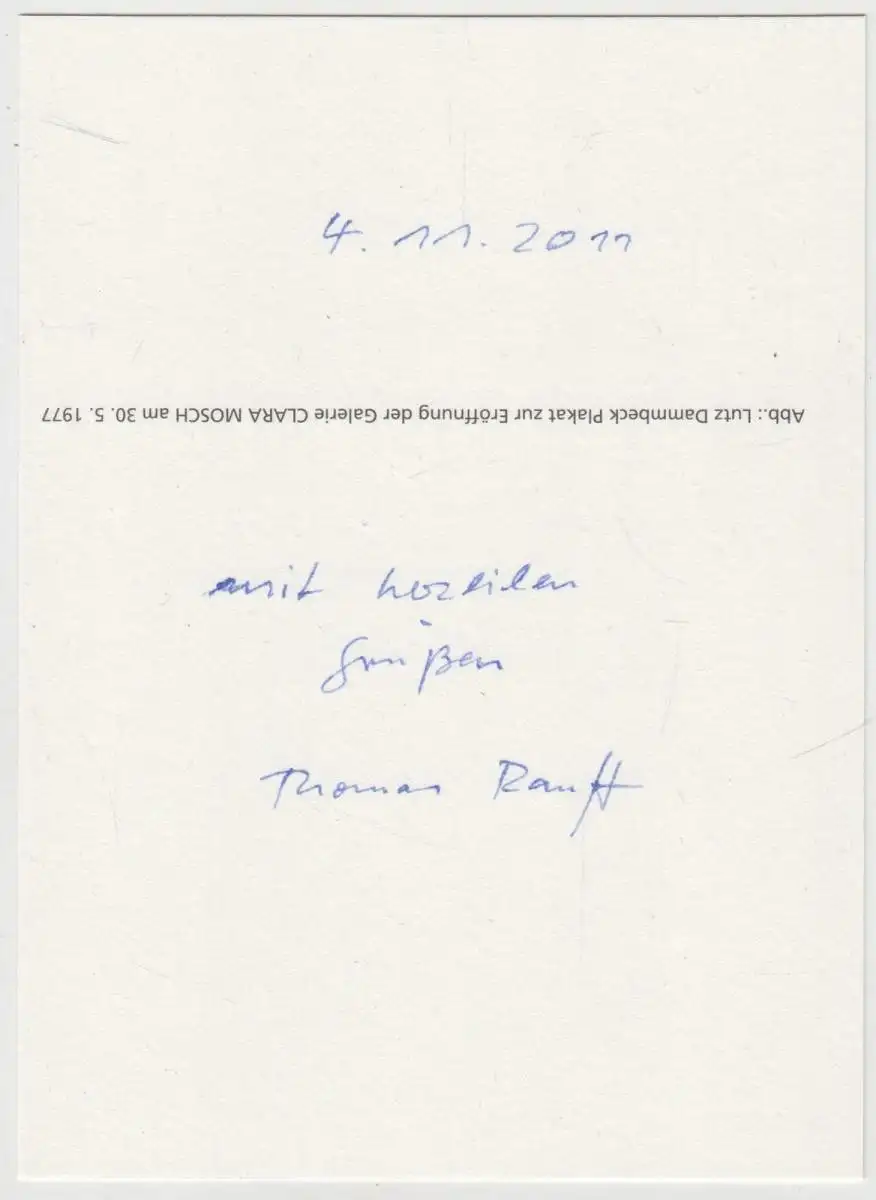 4. 11. 2011
Abb.: Lutz Dammbeck Plakat zur Eröffnung der Galerie CLARA MOSCH am 30. 5. 1977
mit
Grüßen
Thomas Ranft